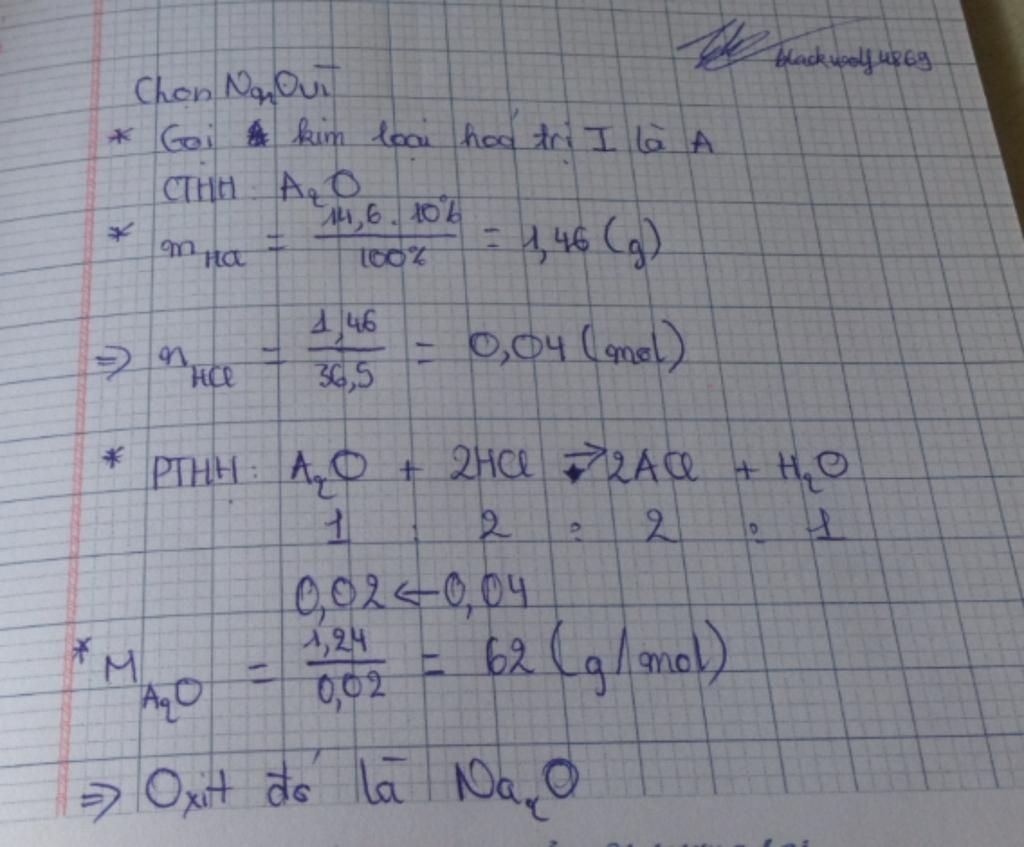 blackwolf4869
Chọn Na₂O vì
* Gọi kim loại hoá trị I là A
CTHH: A₂O
* mHCl = 14,6 . 10% / 100% = 1,46 (g)
=> nHCl = 1,46 / 36,5 = 0,04 (mol)
* PTHH: A₂O + 2HCl → 2ACl + H₂O
1 : 2 : 2 : 1
0,02 ← 0,04
* M A₂O = 1,24 / 0,02 = 62 (g/mol)
=> Oxit đó là Na₂O